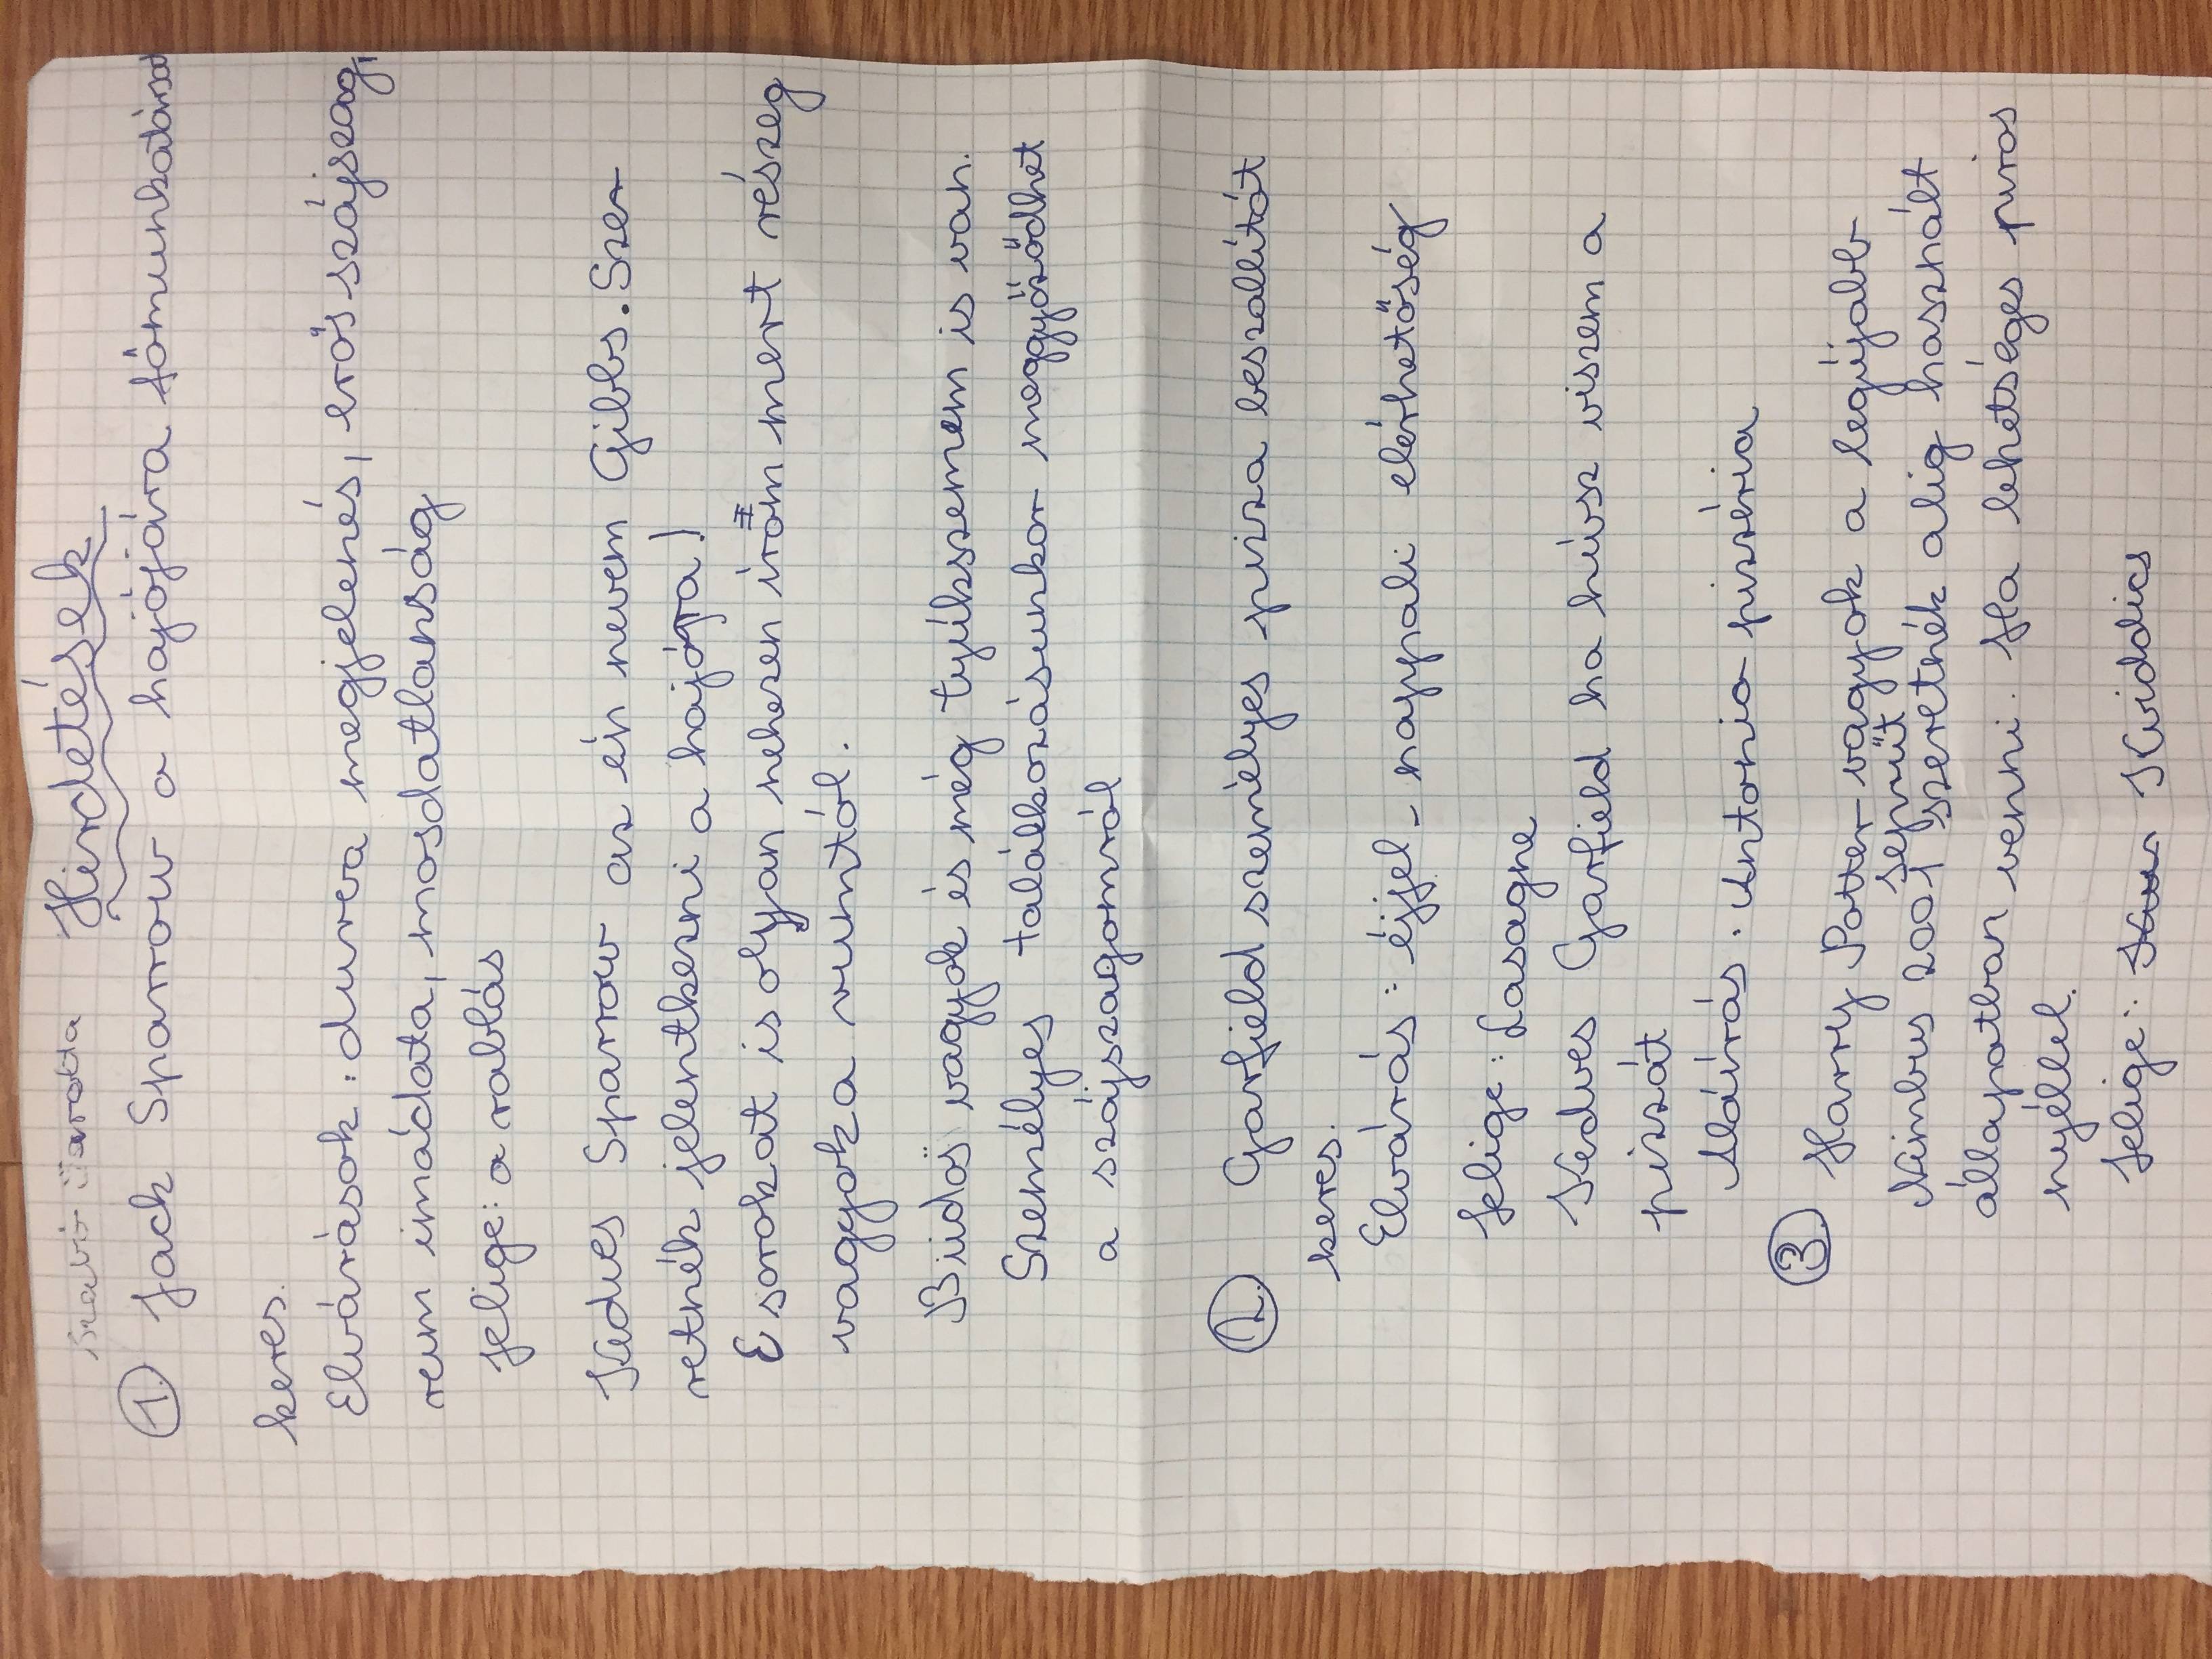 Hirdetések
1. Jack Sparrow a hajójára főmunkatársat
keres.
Elvárások: durva megjelenés, erős szájszag,
rum imádata, mosdatlanság
Jelige: a rablás
Kedves Sparrow az én nevem Gibbs. Sze-
retnék jelentkezni a hajóra!
E sorokat is olyan nehezen írom mert részeg
vagyok a rumtól.
Büdös vagyok és még tyúkszemem is van.
Személyes találkozásunkor meggyőződhet
a szájszagomról
2. Garfield személyes pizza beszállítót
keres.
Elvárás: éjjel-nappali elérhetőség
Jelige: Lasagne
Kedves Garfield ha hívsz viszem a
pizzát
Aláírás. Antonio pizzéria
3. Harry Potter vagyok a legújabb
Nimbus 2001 seprűt szeretnék alig használt
állapotban venni. Ha lehetséges piros
nyéllel.
Jelige: Kviddics